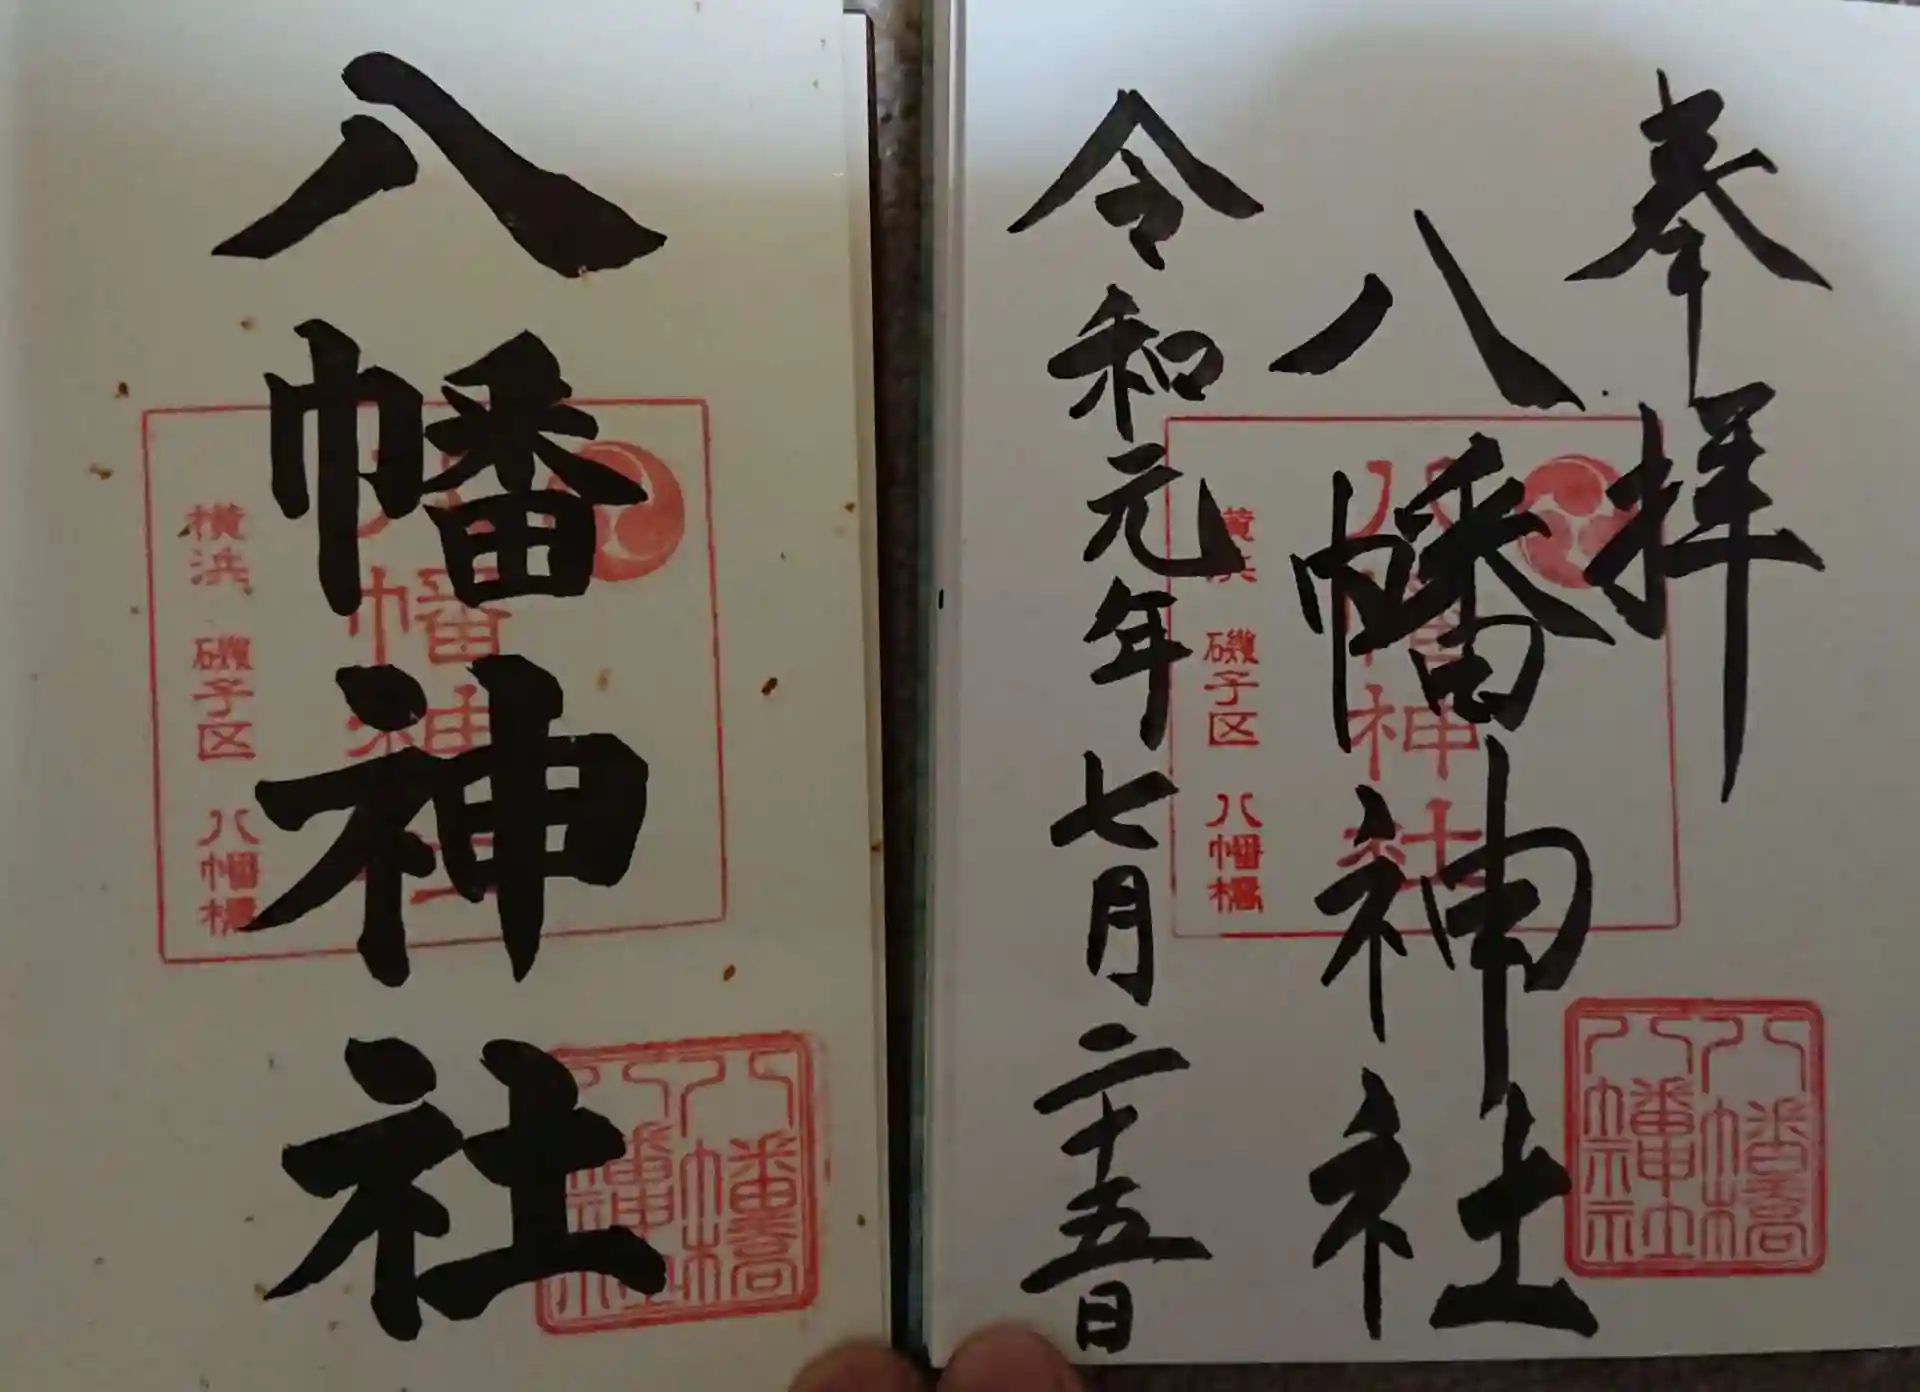 八幡神社
八幡神社
横浜 磯子区 八幡橋
八幡橋
八幡神社
奉拝
八幡神社
八幡神社
令和元年七月二十五日
横浜 磯子区 八幡橋
八幡橋
八幡神社